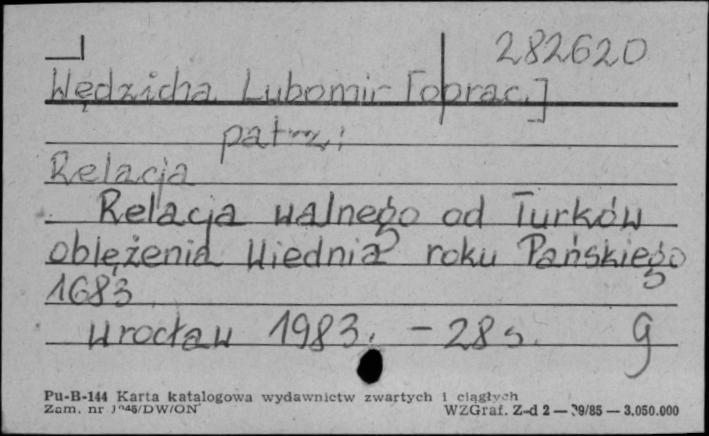 282620
Wędzicha Lubomir [oprac.]
patrz:
Relacja
Relacja walnego od Turków
oblężenia Wiednia roku Pańskiego
1683
Wrocław 1983. - 28 s. g
Pu-B-144 Karta katalogowa wydawnictw zwartych i ciągłych
Zam. nr /DW/ON WZGraf. Z-d 2 — 39/85 — 3.050.000